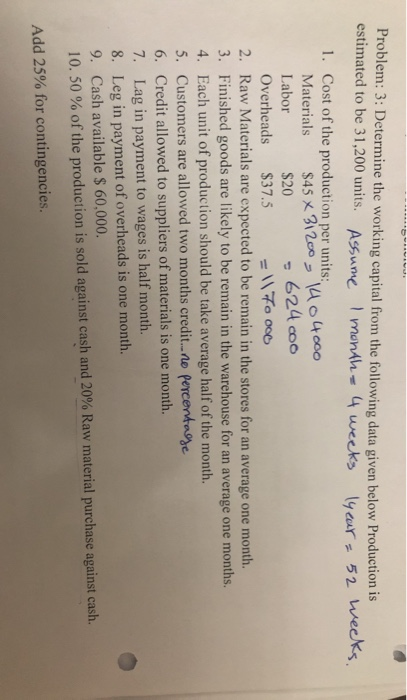 Problem: 3: Determine the working capital from the following data given below Production is
estimated to be 31,200 units. Assume 1 month = 4 weeks 1year = 52 weeks.
1. Cost of the production per units:
Materials $45 x 31200 = 1404000
Labor $20 = 624000
Overheads $37.5 = 1170000
2. Raw Materials are expected to be remain in the stores for an average one month.
3. Finished goods are likely to be remain in the warehouse for an average one months.
4. Each unit of production should be take average half of the month.
5. Customers are allowed two months credit... no percentage
6. Credit allowed to suppliers of materials is one month.
7. Lag in payment to wages is half month.
8. Leg in payment of overheads is one month.
9. Cash available $ 60,000.
10. 50 % of the production is sold against cash and 20% Raw material purchase against cash.
Add 25% for contingencies.